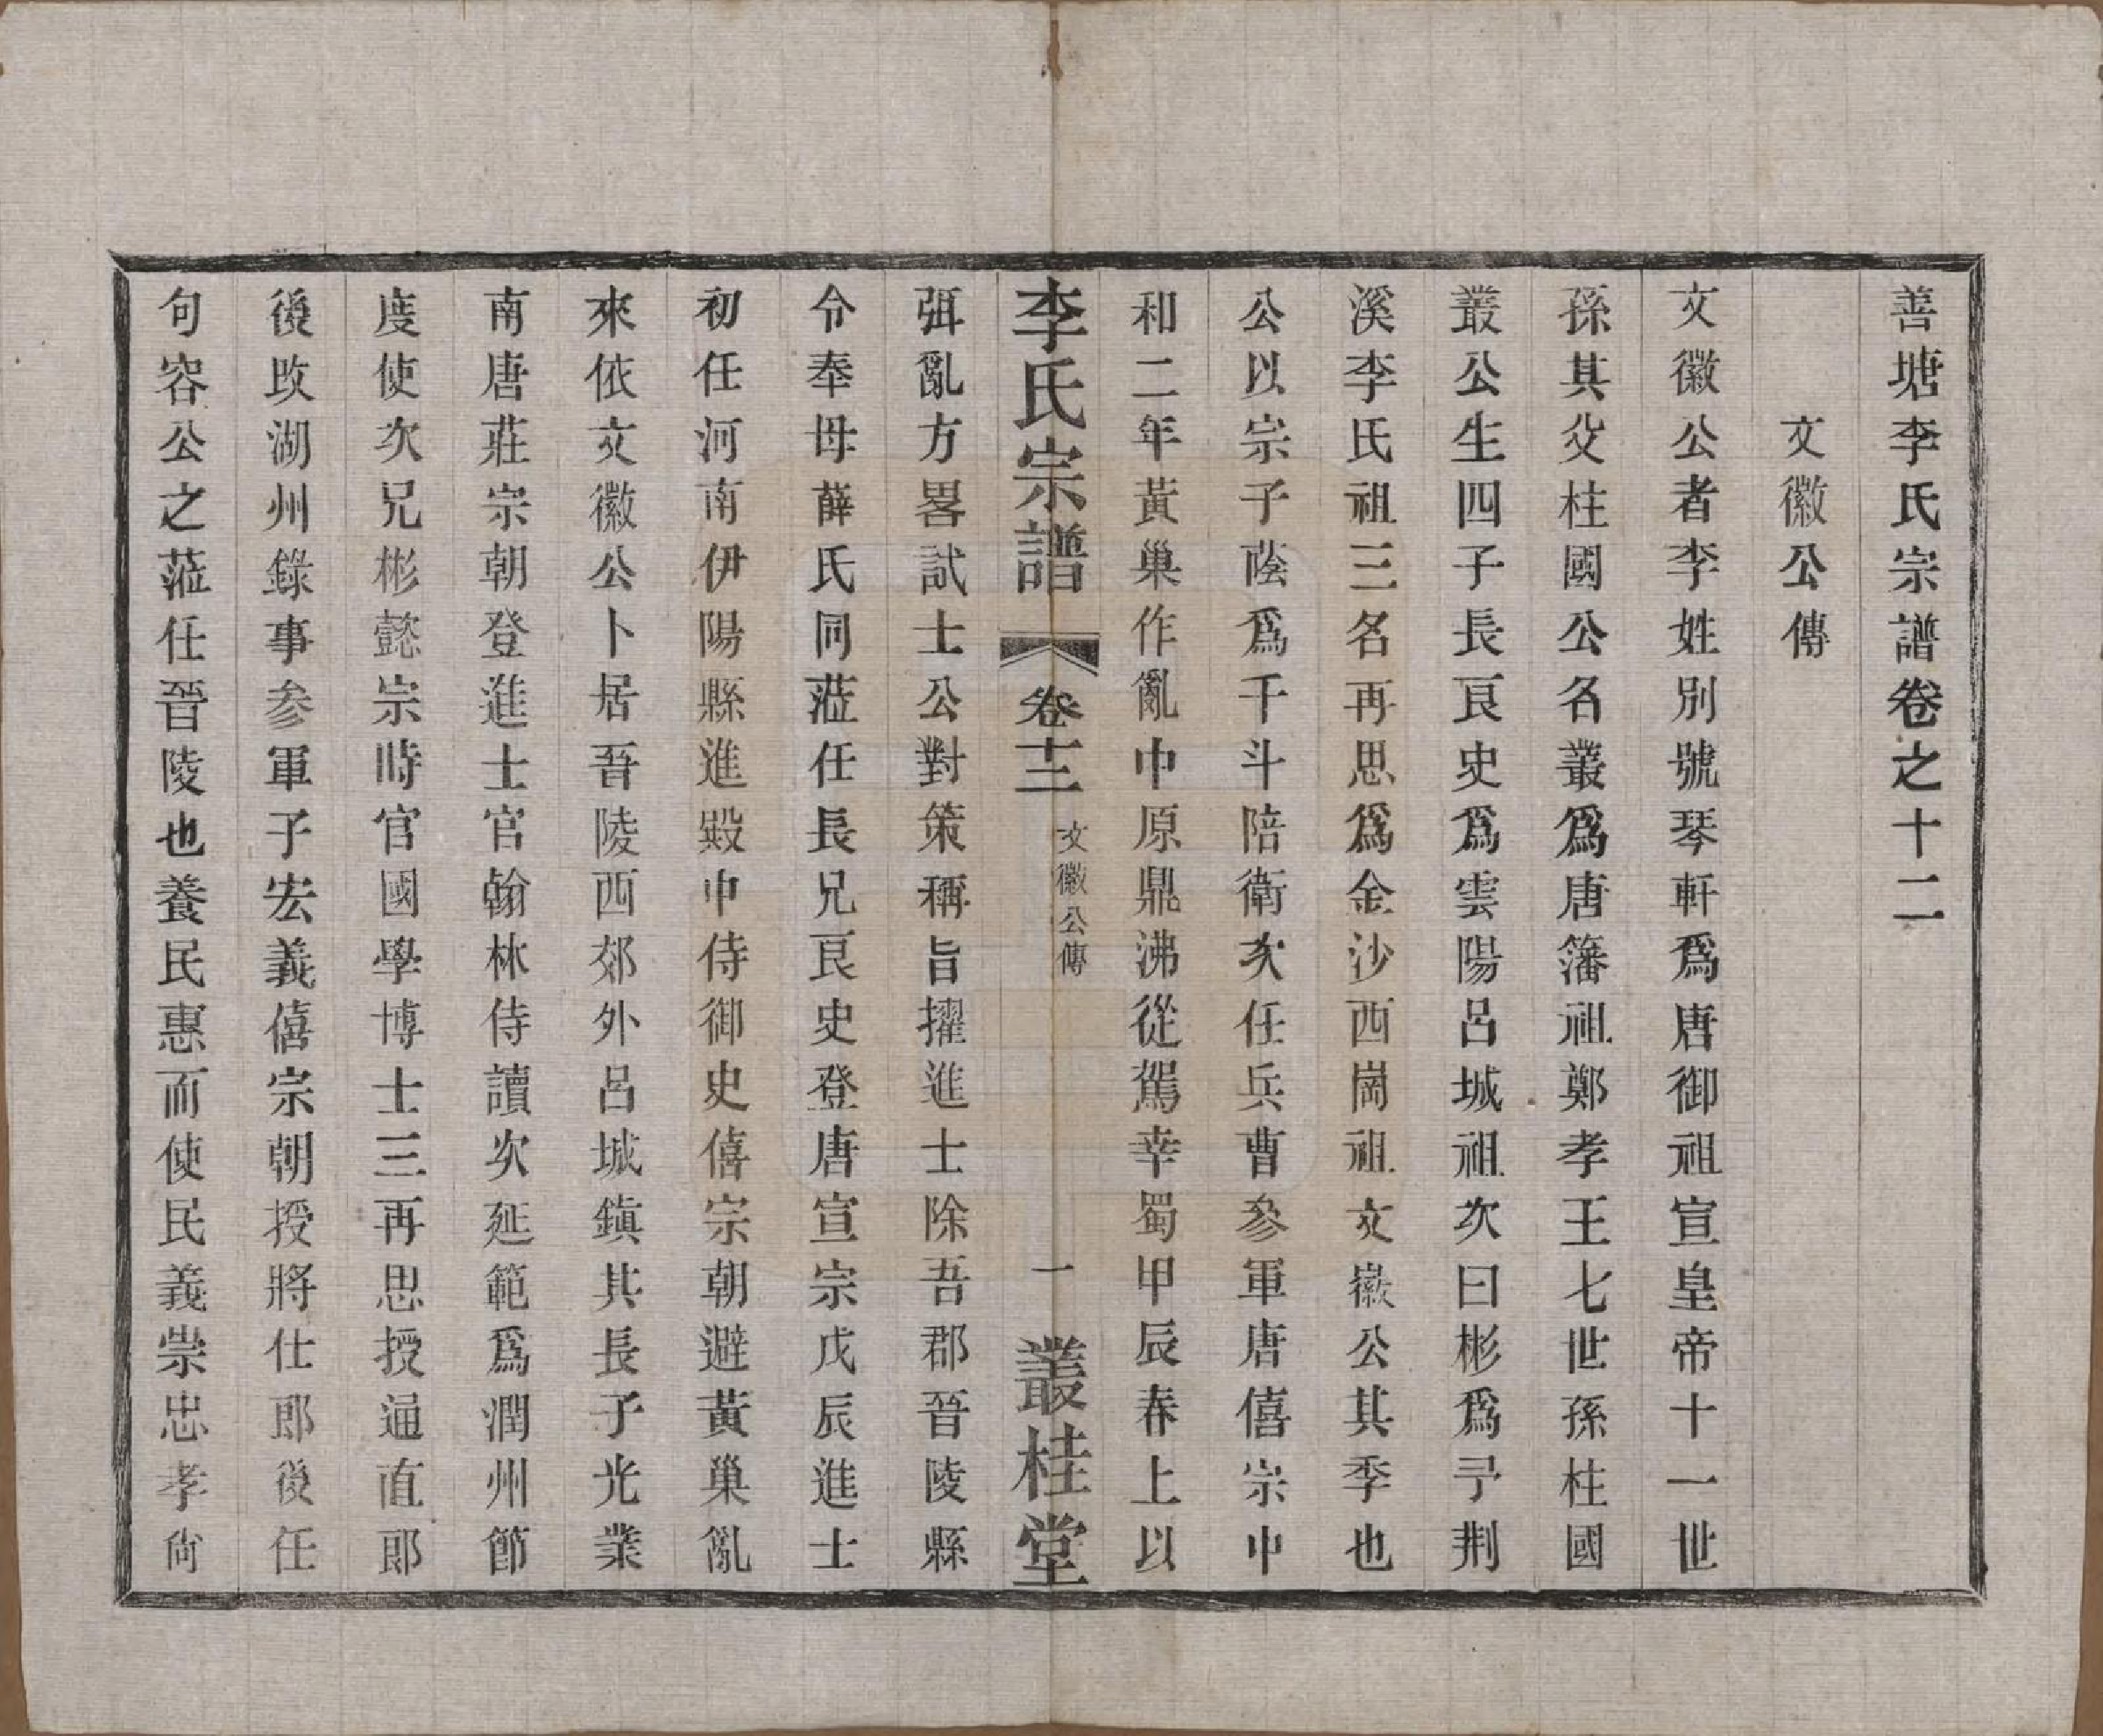 善塘李氏宗譜卷之十二
文徽公傳
文徽公者李姓別號琴軒爲唐御祖宣皇帝十一世
孫其父柱國公名叢爲唐籓祖鄭孝王七世孫柱國
叢公生四子長良史爲雲陽呂城祖次曰彬爲予荆
溪李氏祖三名再思爲金沙西崗祖文徽公其季也
公以宗子蔭爲千斗陪衛次任兵曹參軍唐僖宗中
和二年黃巢作亂中原鼎沸從駕幸蜀甲辰春上以
李氏宗譜 卷十二 文徽公傳 一 叢桂堂
弭亂方畧試士公對策稱旨擢進士除吾郡晉陵縣
令奉母薛氏同蒞任長兄良史登唐宣宗戊辰進士
初任河南伊陽縣進殿中侍御史僖宗朝避黃巢亂
來依文徽公卜居吾陵西郊外呂城鎭其長子光業
南唐莊宗朝登進士官翰林侍讀次延範爲潤州節
度使次兄彬懿宗時官國學博士三再思授通直郎
後改湖州錄事參軍子宏義僖宗朝授將仕郎後任
句容公之蒞任晉陵也養民惠而使民義崇忠孝尙